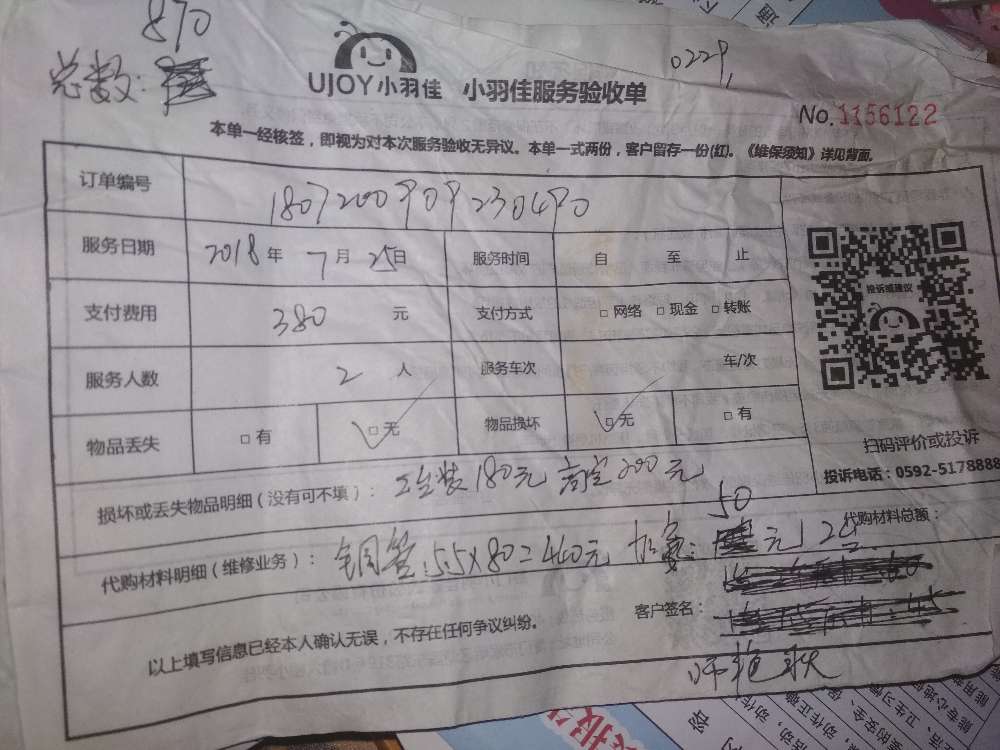 870
总数：
0229
UJOY小羽佳 小羽佳服务验收单
No.1156122
本单一经核签，即视为对本次服务验收无异议。本单一式两份，客户留存一份(红)。《维保须知》详见背面。
订单编号 1807200909230490
服务日期 2018年 7月 25日 服务时间 自 至 止
支付费用 380 元 支付方式 □ 网络 □ 现金 □ 转账
服务人数 2 人 服务车次 车/次
物品丢失 □ 有 □ 无 物品损坏 □ 无 □ 有
投诉或建议
扫码评价或投诉
投诉电话：0592-5178888
损坏或丢失物品明细（没有可不填）： 安装180元 高空200元
50
代购材料明细（维修业务）： 铜管:5.5×80=440元 加氨: 元 代购材料总额：
以上填写信息已经本人确认无误，不存在任何争议纠纷。 客户签名：